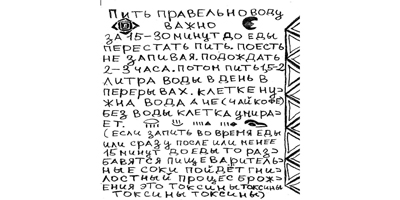 ПИТЬ ПРАВЕЛЬНО ВОДУ
ВАЖНО
ЗА 15-30 МИНУТ ДО ЕДЫ
ПЕРЕСТАТЬ ПИТЬ. ПОЕСТЬ
НЕ ЗАПИВАЯ. ПОДОЖДАТЬ
2-3 ЧАСА. ПОТОМ ПИТЬ 1,5-2
ЛИТРА ВОДЫ В ДЕНЬ В
ПЕРЕРЫВАХ. КЛЕТКЕ НУ-
ЖНА ВОДА А ЧЕ (ЧАЙ КОФЕ)
БЕЗ ВОДЫ КЛЕТКА УМИРА-
ЕТ.
(ЕСЛИ ЗАПИТЬ ВО ВРЕМЯ ЕДЫ
ИЛИ СРАЗУ ПОСЛЕ ИЛИ МЕНЕЕ
15 МИНУТ ДО ЕДЫ ТО РАЗ-
БАВЯТСЯ ПИЩЕВАРИТЕЛЬ-
НЫЕ СОКИ ПОЙДЁТ ГНИ-
ЛОСТНЫЙ ПРОЦЕС БРОЖ-
ЕНИЯ ЭТО ТОКСИНЫ ТОКСИНЫ
ТОКСИНЫ ТОКСИНЫ)